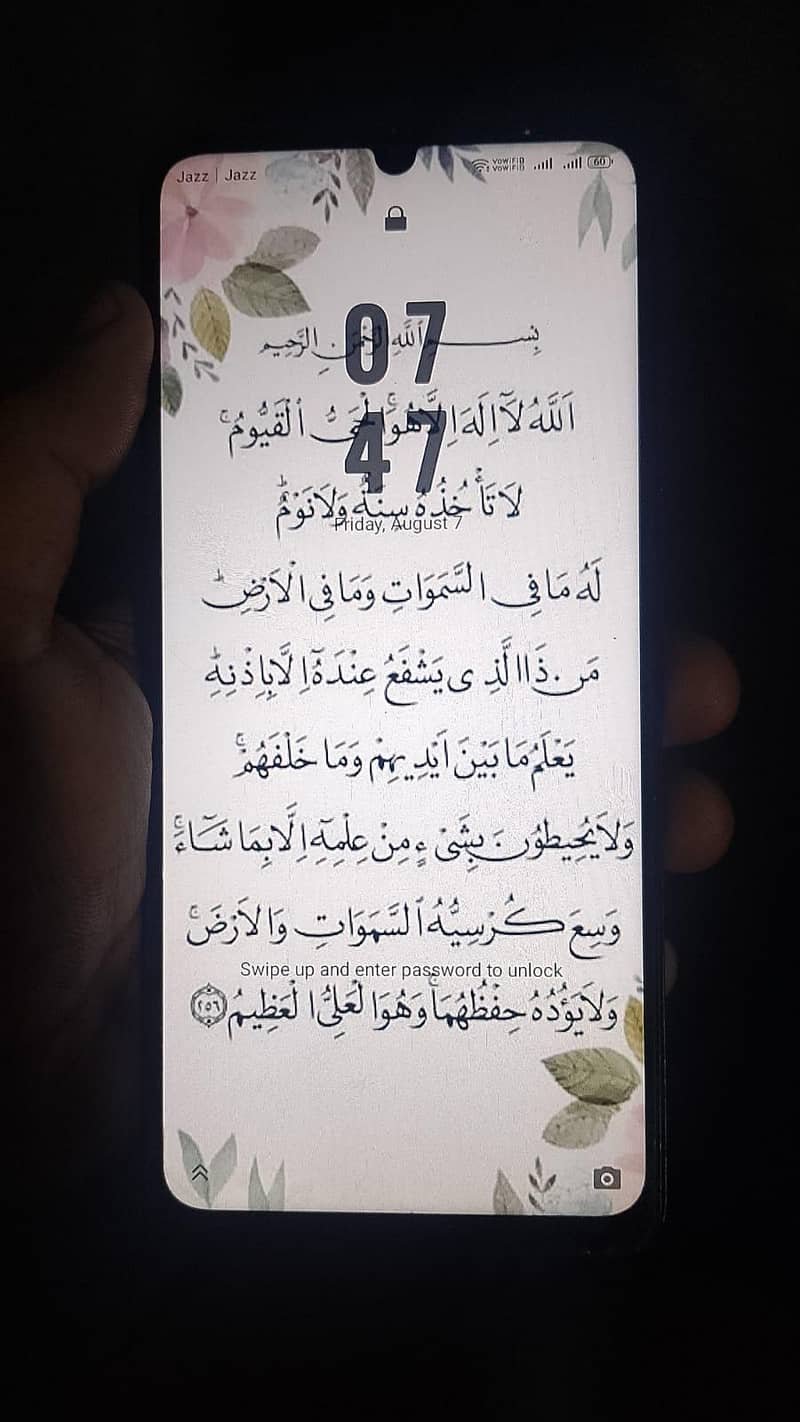 Jazz | Jazz
VoWiFi
VoWiFi
60
07
بِسْمِ اللَّهِ الرَّحْمَٰنِ الرَّحِيمِ
اَللَّهُ لَآ اِلَهَ اِلَّا هُوَ الْحَىُّ ٱلْقَيُّومُ ۚ
47
لَا تَأْخُذُهُ سِنَةٌ وَلَا نَوْمٌ ؕ
Friday, August 7
لَهُ مَا فِى السَّمَوَاتِ وَمَا فِى الْاَرْضِ ؕ
مَن ذَا الَّذِى يَشْفَعُ عِنْدَهُٓ اِلَّا بِاِذْنِهِ ؕ
يَعْلَمُ مَا بَيْنَ اَيْدِيهِمْ وَمَا خَلْفَهُمْ ۚ
وَلَا يُحِيطُونَ بِشَىْءٍ مِنْ عِلْمِهِٓ اِلَّا بِمَا شَآءَ ۚ
وَسِعَ كُرْسِيُّهُ ٱلسَّمَوَاتِ وَالْاَرْضَ ۚ
Swipe up and enter password to unlock
وَلَا يَؤُدُهُ حِفْظُهُمَا ۚ وَهُوَ الْعَلِىُّ الْعَظِيمُ ٢٥٦